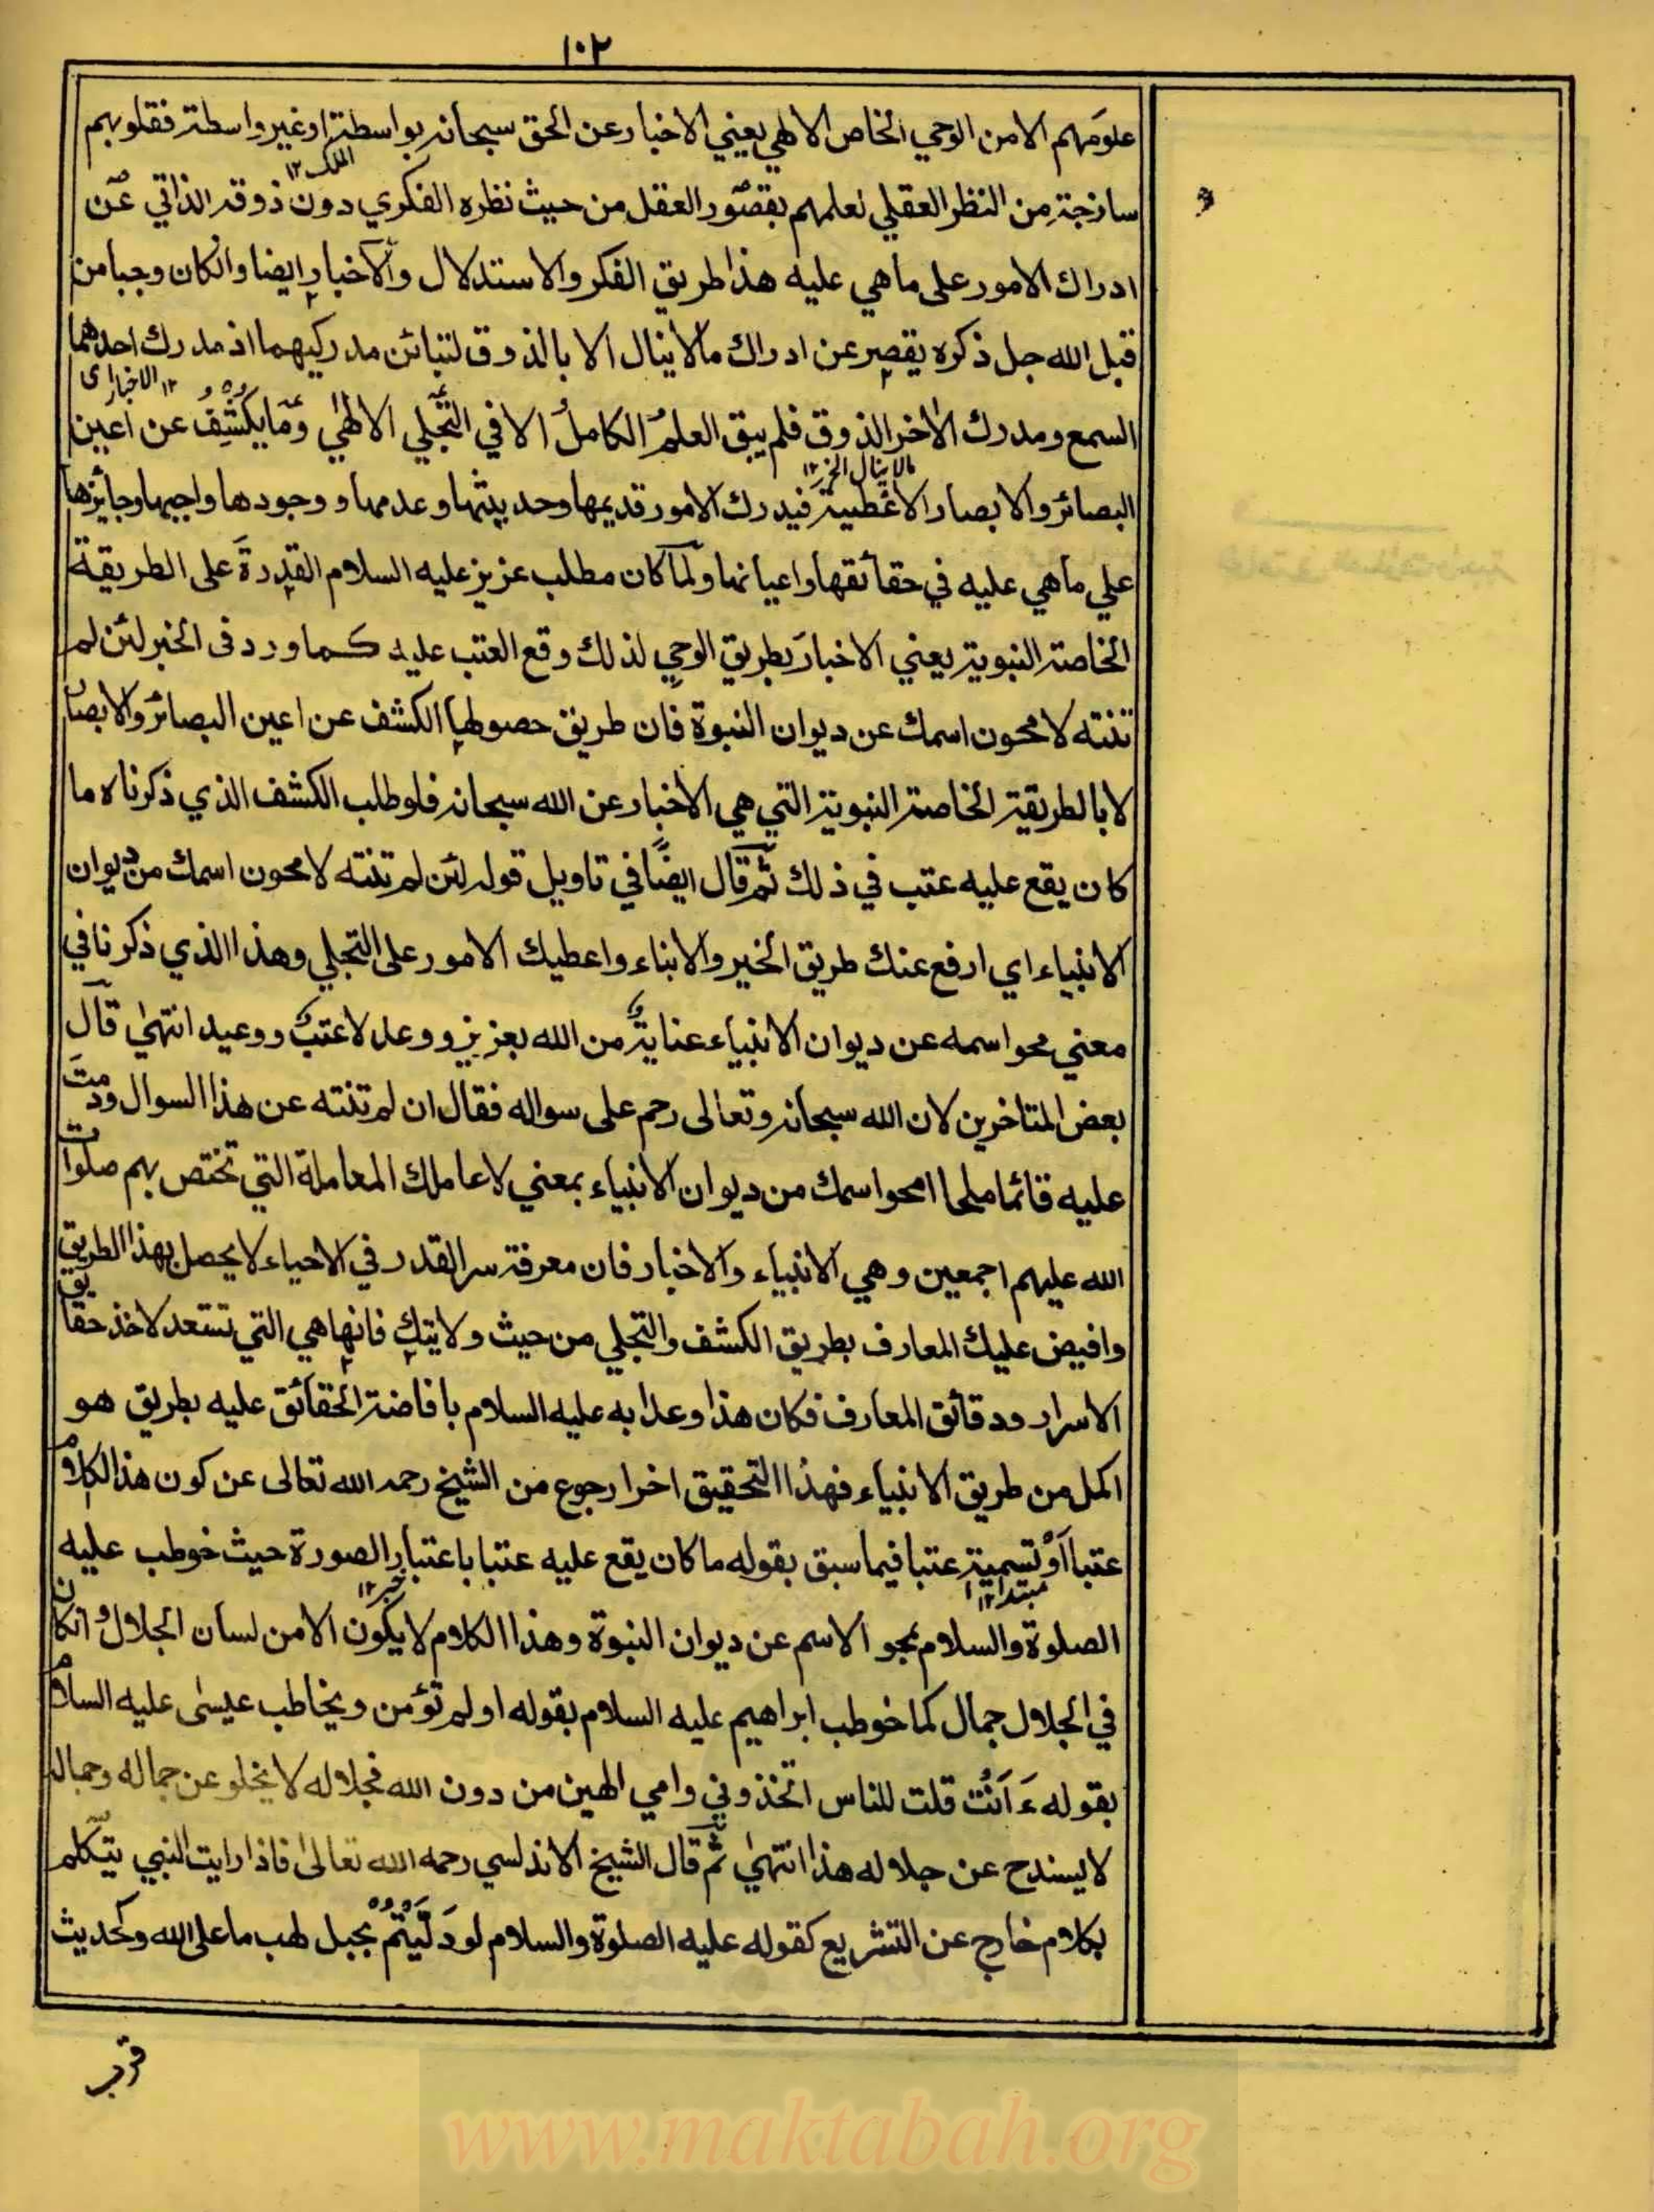 ١٠٢
علومهم الا من الوحي الخاص الالهي يعني الاخبار عن الحق سبحانه بواسطة او غير واسطة فقلوبهم
الملك ١٢
ساذجة من النظر العقلي لعلمهم بقصور العقل من حيث نظره الفكري دون ذوقه الذاتي عن
ادراك الامور على ما هي عليه هذا طريق الفكر والاستدلال والاخبار ايضا وانكان وجبا من
قبل الله جل ذكره يقصر عن ادراك ما لا ينال الا بالذوق لتبائن مدركيهما اذ مدرك احدهما
اى الاخبار ١٢
السمع ومدرك الاخر الذوق فلم يبق العلم الكامل الا في التجلي الالهي وما يكشف عن اعين
مالا ينال الخ ١٢
البصائر والابصار الاغطية فيدرك الامور قديمها وحديثها وعدمها و وجودها واجبها وجائزها
علي ما هي عليه في حقائقها واعيانها ولما كان مطلب عزيز عليه السلام القدرة على الطريقة
الخاصة النبوية يعني الاخبار بطريق الوحي لذلك وقع العتب عليه كما ورد فى الخبر لئن لم
تنته لامحون اسمك عن ديوان النبوة فان طريق حصولها الكشف عن اعين البصائر والابصار
لا بالطريقة الخاصة النبوية التي هي الاخبار عن الله سبحانه فلو طلب الكشف الذي ذكرناه ما
كان يقع عليه عتب في ذلك ثم قال ايضًا في تاويل قوله لئن لم تنته لامحون اسمك من ديوان
الانبياء اي ارفع عنك طريق الخبر والانباء واعطيك الامور على التجلي وهذا الذي ذكرنا في
معني محو اسمه عن ديوان الانبياء عناية من الله بعزيز و وعد لا عتب ووعيد انتهىٰ قال
بعض المتاخرين لان الله سبحانه وتعالى رحم على سواله فقال ان لم تنته عن هذا السوال ودمت
عليه قائما ملحا امحوا سمك من ديوان الانبياء بمعني لا عاملك المعاملة التي تختص بهم صلوات
الله عليهم اجمعين وهي الانبياء والاخبار فان معرفة سر القدر في الاحياء لا يحصل بهذا الطريق
وافيض عليك المعارف بطريق الكشف والتجلي من حيث ولايتك فانها هي التي تستعد لاخذ حقايق
الاسرار ودقائق المعارف فكان هذا وعدا به عليه السلام بافاضة الحقائق عليه بطريق هو
اكمل من طريق الانبياء فهذا التحقيق اخرا رجوع من الشيخ رحمه الله تعالى عن كون هذا الكلام
عتبا او تسمية عتبا فيما سبق بقوله ما كان يقع عليه عتبا باعتبار الصورة حيث خوطب عليه
مبتدا ١٢
خبر ١٢
الصلوة والسلام بمحو الاسم عن ديوان النبوة وهذا الكلام لا يكون الا من لسان الجلال وانكان
في الجلال جمال كما خوطب ابراهيم عليه السلام بقوله اولم تؤمن ويخاطب عيسىٰ عليه السلام
بقوله ءَاَنت قلت للناس اتخذوني وامي الهين من دون الله فجلاله لا يخلو عن جماله وجماله
لا يسندح عن جلاله هذا انتهىٰ ثم قال الشيخ الاندلسي رحمه الله تعالىٰ فاذا رايت النبي يتكلم
بكلام خارج عن التشريع كقوله عليه الصلوة والسلام لو دَلَّيْتُمْ بحبل لهب ما على الله وكحديث
قرب
www.maktabah.org